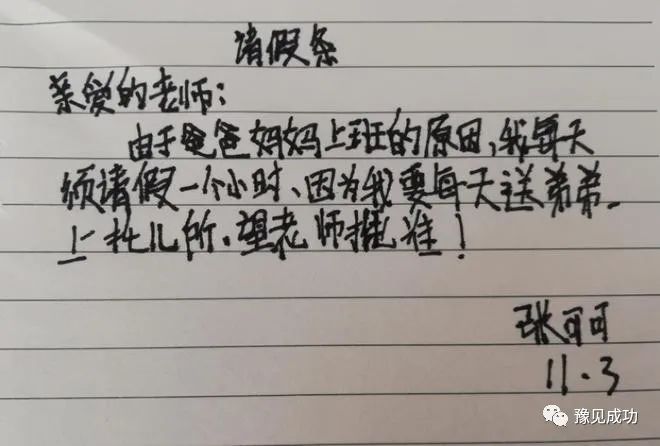 请假条
亲爱的老师：
由于爸爸妈妈上班的原因，我每天
须请假一个小时、因为我要每天送弟弟
上托儿所．望老师批准！
张可可
11.3
豫见成功